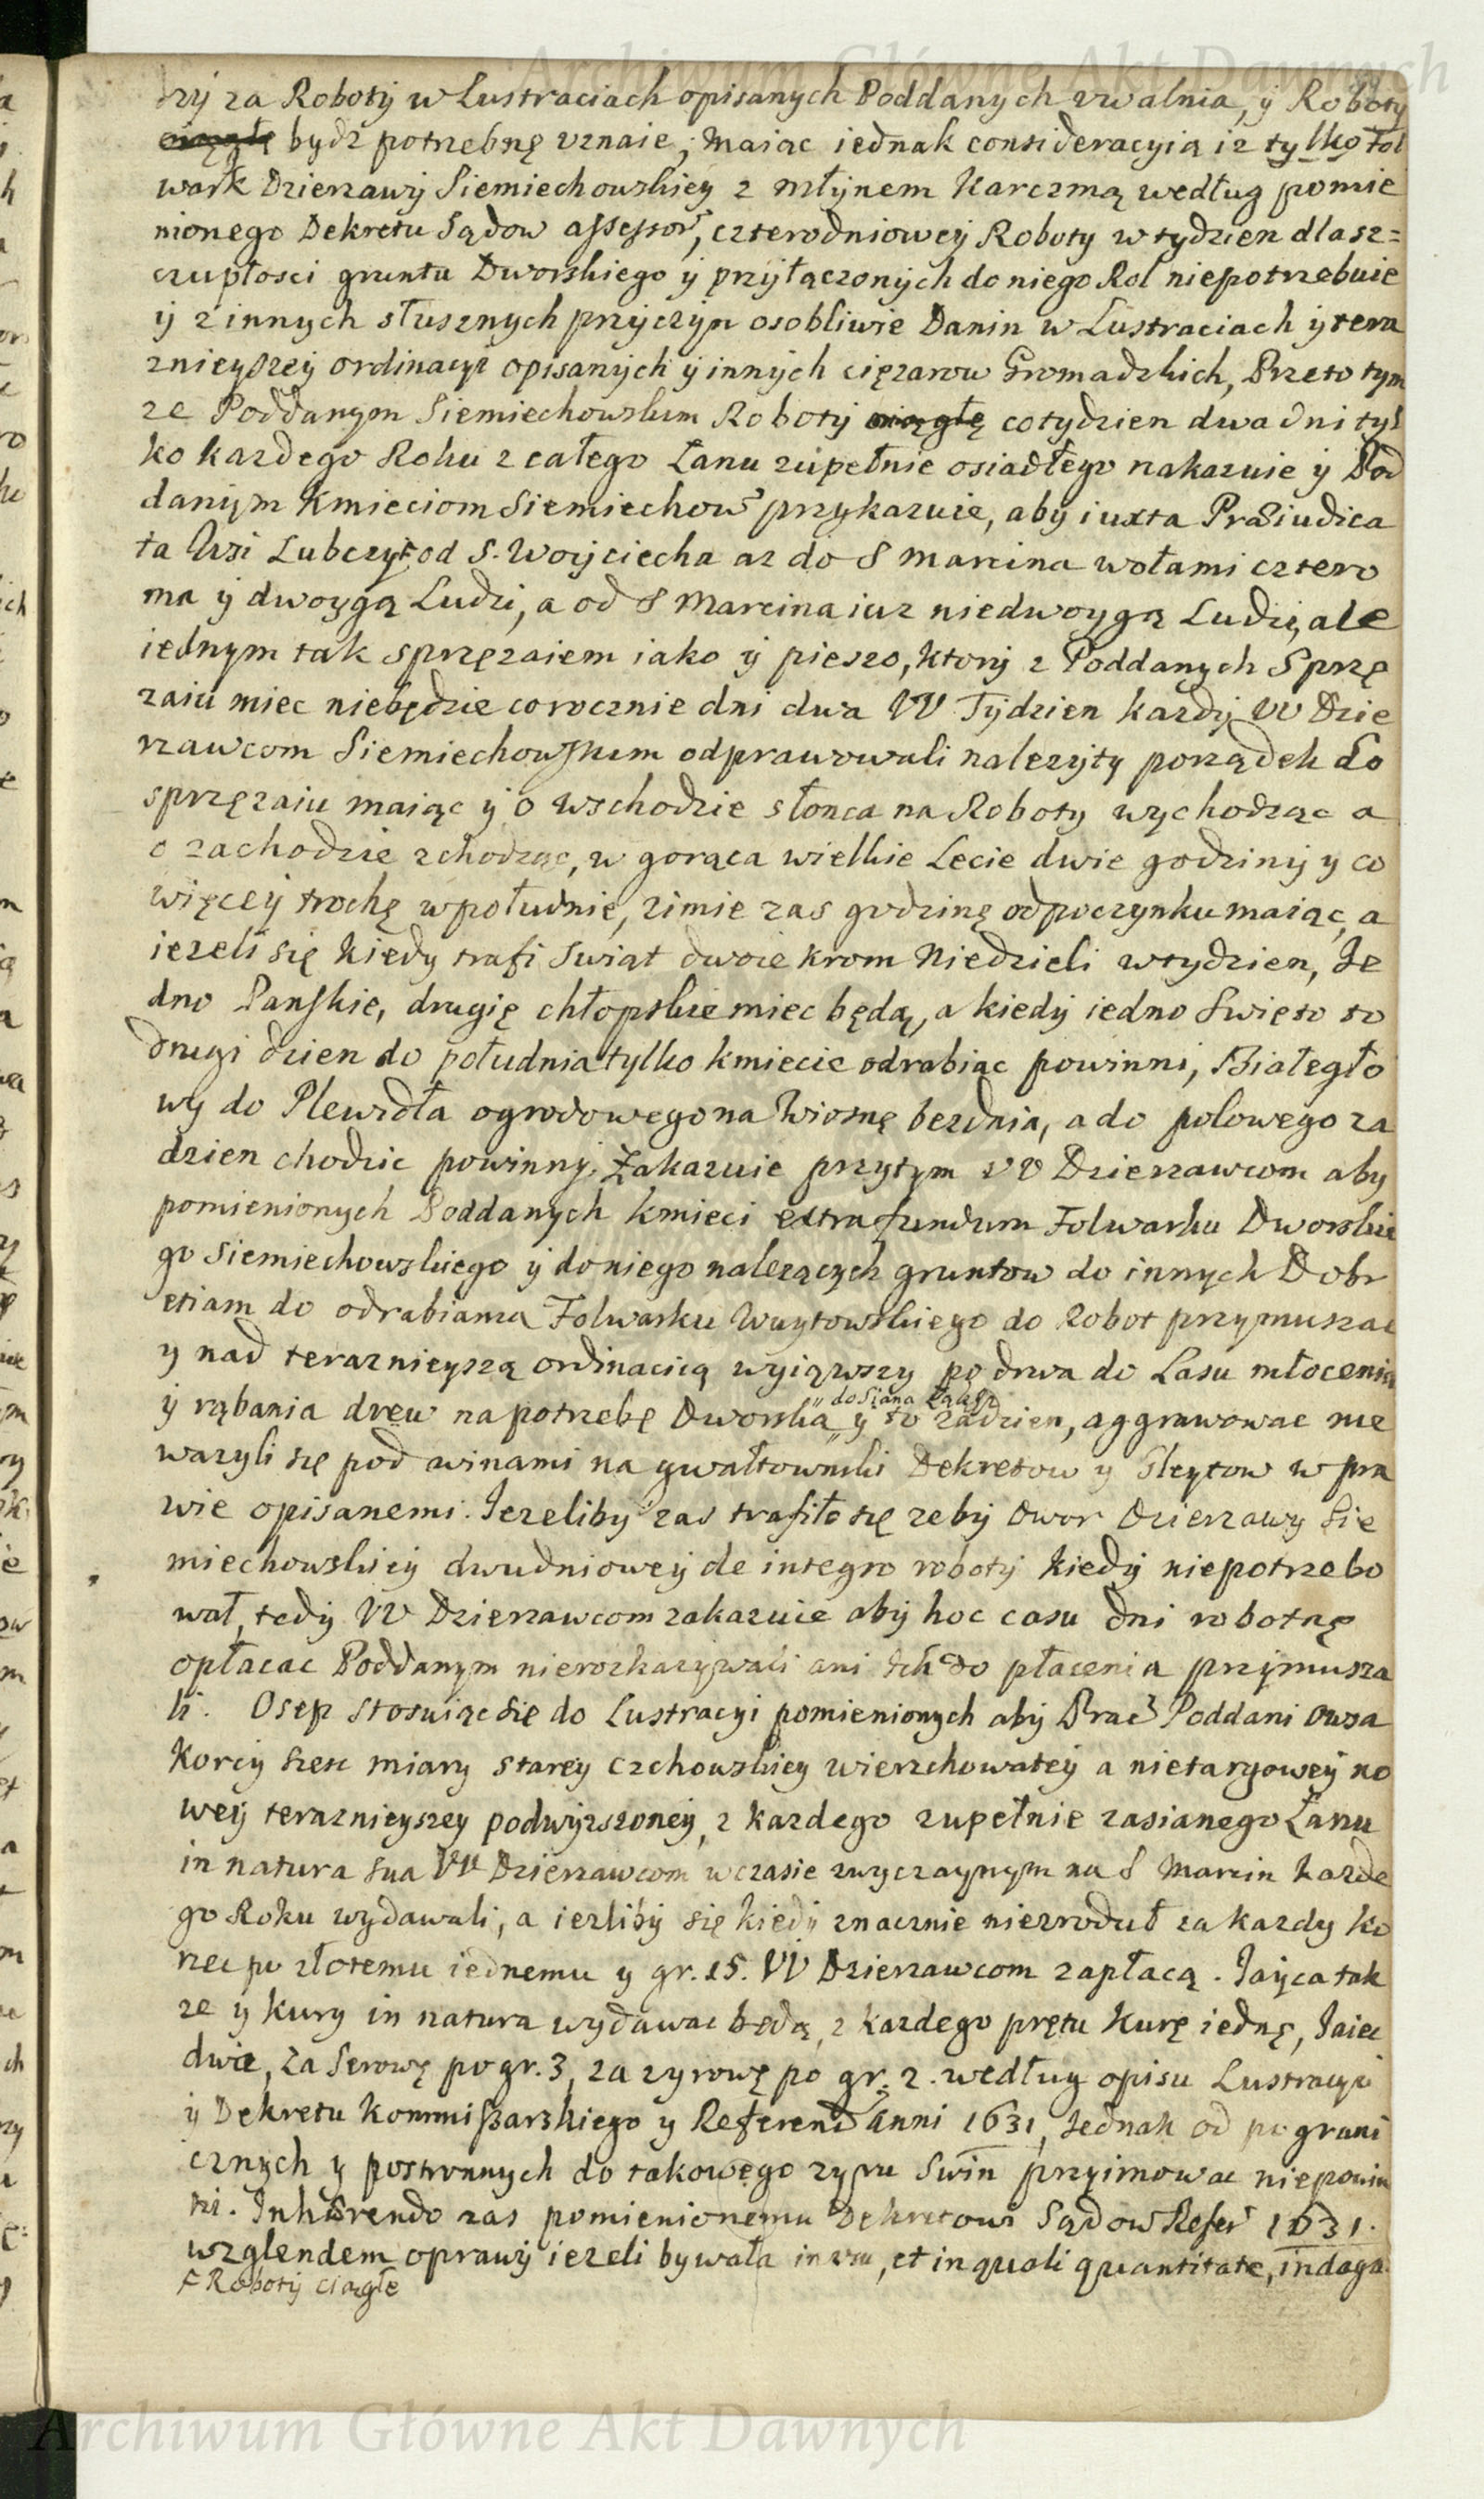 Archiwum Główne Akt Dawnych
rzy za Roboty w Lustraciach opisanych Poddanych vwalnia, ÿ Roboty
ciągłę bydz potrzebnę vznaie, maiąc iednak consideracyią iz tylko fol
wark Dzierzawÿ Siemiechowskiey z młÿnem Karczmą według pomie
nionego Dekretu Sądow assessor, czterodniowey Roboty w tydzien dla sz=
czupłosci gruntu Dworskiego ÿ przÿłączonÿch do niego Rol niepotrzebuie
ÿ z innych słusznych przÿczÿn osobliwie Danin w Lustraciach ÿ tera
znieÿszeÿ ordinacÿi opisanÿch ÿ innÿch cięzarow Gromadzkich, Przeto tym
ze Poddanym Siemiechowskim Roboty ciągłę co tydzien dwa dni tyl
ko kazdego Roku z całego Łanu zupełnie osiadłego nakazuie ÿ Pod
danÿm Kmieciom Siemiechow przykazuie, aby iuxta Præiudica
ta Wsi Lubczÿ F od S. Woÿciecha az do S Marcina wołami cztero
ma ÿ dwoygą Ludzi, a od S Marcina iuz niedwoygą Ludzi, ale
iednym tak sprzęzaiem iako ÿ pieszo, ktorÿ z Poddanych Sprzę
zaiu miec niebędzie corocznie dni dwa W Tÿdzien kazdÿ W Dzie
rzawcom Siemiechowskim odprawowali nalezÿty porządek do
sprzęzaiu maiąc ÿ o wschodzie słonca na Roboty wychodząc a
o zachodzie zchodząc, w gorąca wielkie Lecie dwie godzinÿ y co
więceÿ trochę wpołudnie, zimie zas godzinę odpoczynku maiąc, a
iezeli się kiedy trafi Swiąt dwoie krom Niedzieli wtydzien, Je
dno Panskie, drugię chłopskie miec będą, a kiedÿ iedno Swięto to
drugi dzien do południa tylko kmiecie odrabiac powinni, Białegło
wy do Plewidła ogrodowego na Wiosnę bezdnia, a do polowego za
dzien chodzic powinny. Zakazuie przytym W Dzierzawcom aby
pomienionych Poddanych kmieci extra fundum Folwarku Dworskie
go Siemiechowskiego ÿ doniego nalezących gruntow do innych Dobr
etiam do odrabiania Folwarku Wuytowskiego do Robot przymuszac
y nad teraznieyszą ordinacią wyiąwszy po drwa do Lasu młocenia
ÿ rąbania drew na potrzebę Dworską " y to zadzien, aggrawowac nie
" do Siana Łąkę
wazyli się pod winami na gwałtowniki Dekretow y Gleytow w pra
wie opisanemi. Jezeliby zas trafiło się zeby Dwor Dzierzawy Sie
miechowskiey dwudniowey de integro robotÿ kiedÿ niepotrzebo
wał, tedÿ W Dzierzawcom zakazuie abÿ hoc casu dni robotnę
opłacac Poddanym nierozkazywali ani Ich do płacenia przymusza
li. Osep stosuiąc się do Lustracyi pomienionych aby Prac Poddani owsa
Korcy szesc miary starey Czchowskiey wierzchowatey a nietargowey no
wey teraznieyszey podwyzszoney, z kazdego zupełnie zasianego Łanu
in natura sua W Dzierzawcom w czasie zwyczaynym na S Marcin kazde
go Roku wydawali, a iezliby się kiedÿ znacznie niezrodził za kazdy ko
rzec po złotemu iednemu y gr. 15. W Dzierzawcom zapłacą. Jaÿca tak
ze y kury in natura wydawac będą, z kazdego prętu kurę iednę, Jaiec
dwie, za Serowę po gr. 3, za zyrowę po gr. 2. według opisu Lustracyi
ÿ Dekretu Kommissarskiego y Referend Anni 1631, Jednak od pograni
cznych y postronnych do takowego zyru Swin przyimowac niepowin
ni. Inhærendo zas pomienionemu Dekretowi Sądow Refer 1631.
względem oprawÿ iezeli bywała in usu, et in quali quantitate, indaga
F Robotÿ ciągłe
Archiwum Główne Akt Dawnych